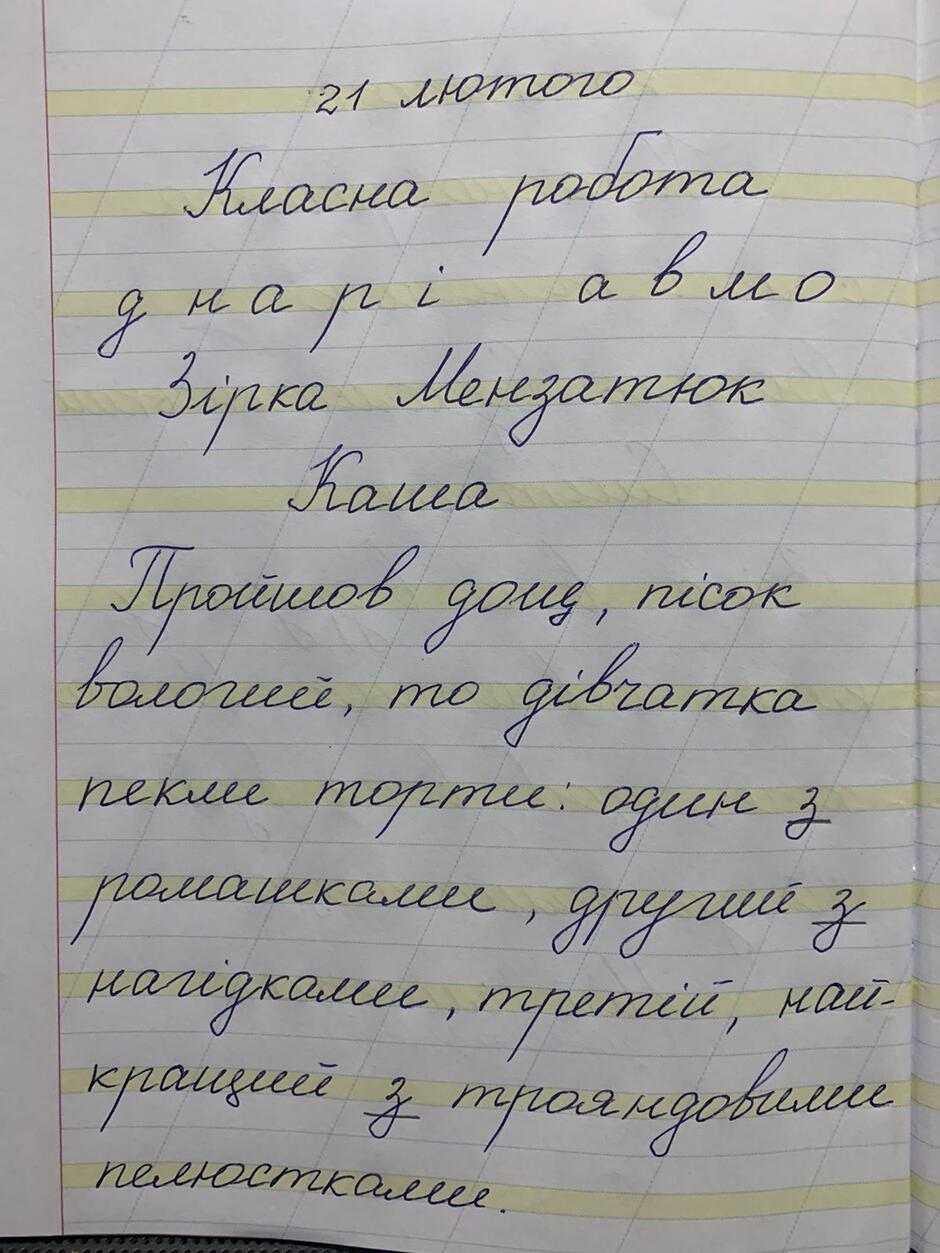 21 лютого
Класна робота
д н а р і а в м о
Зірка Мензатюк
Каша
Пройшов дощ, пісок
вологий, то дівчатка
пекли торти: один з
ромашками, другий з
нагідками, третій, най-
кращий з трояндовими
пелюстками.